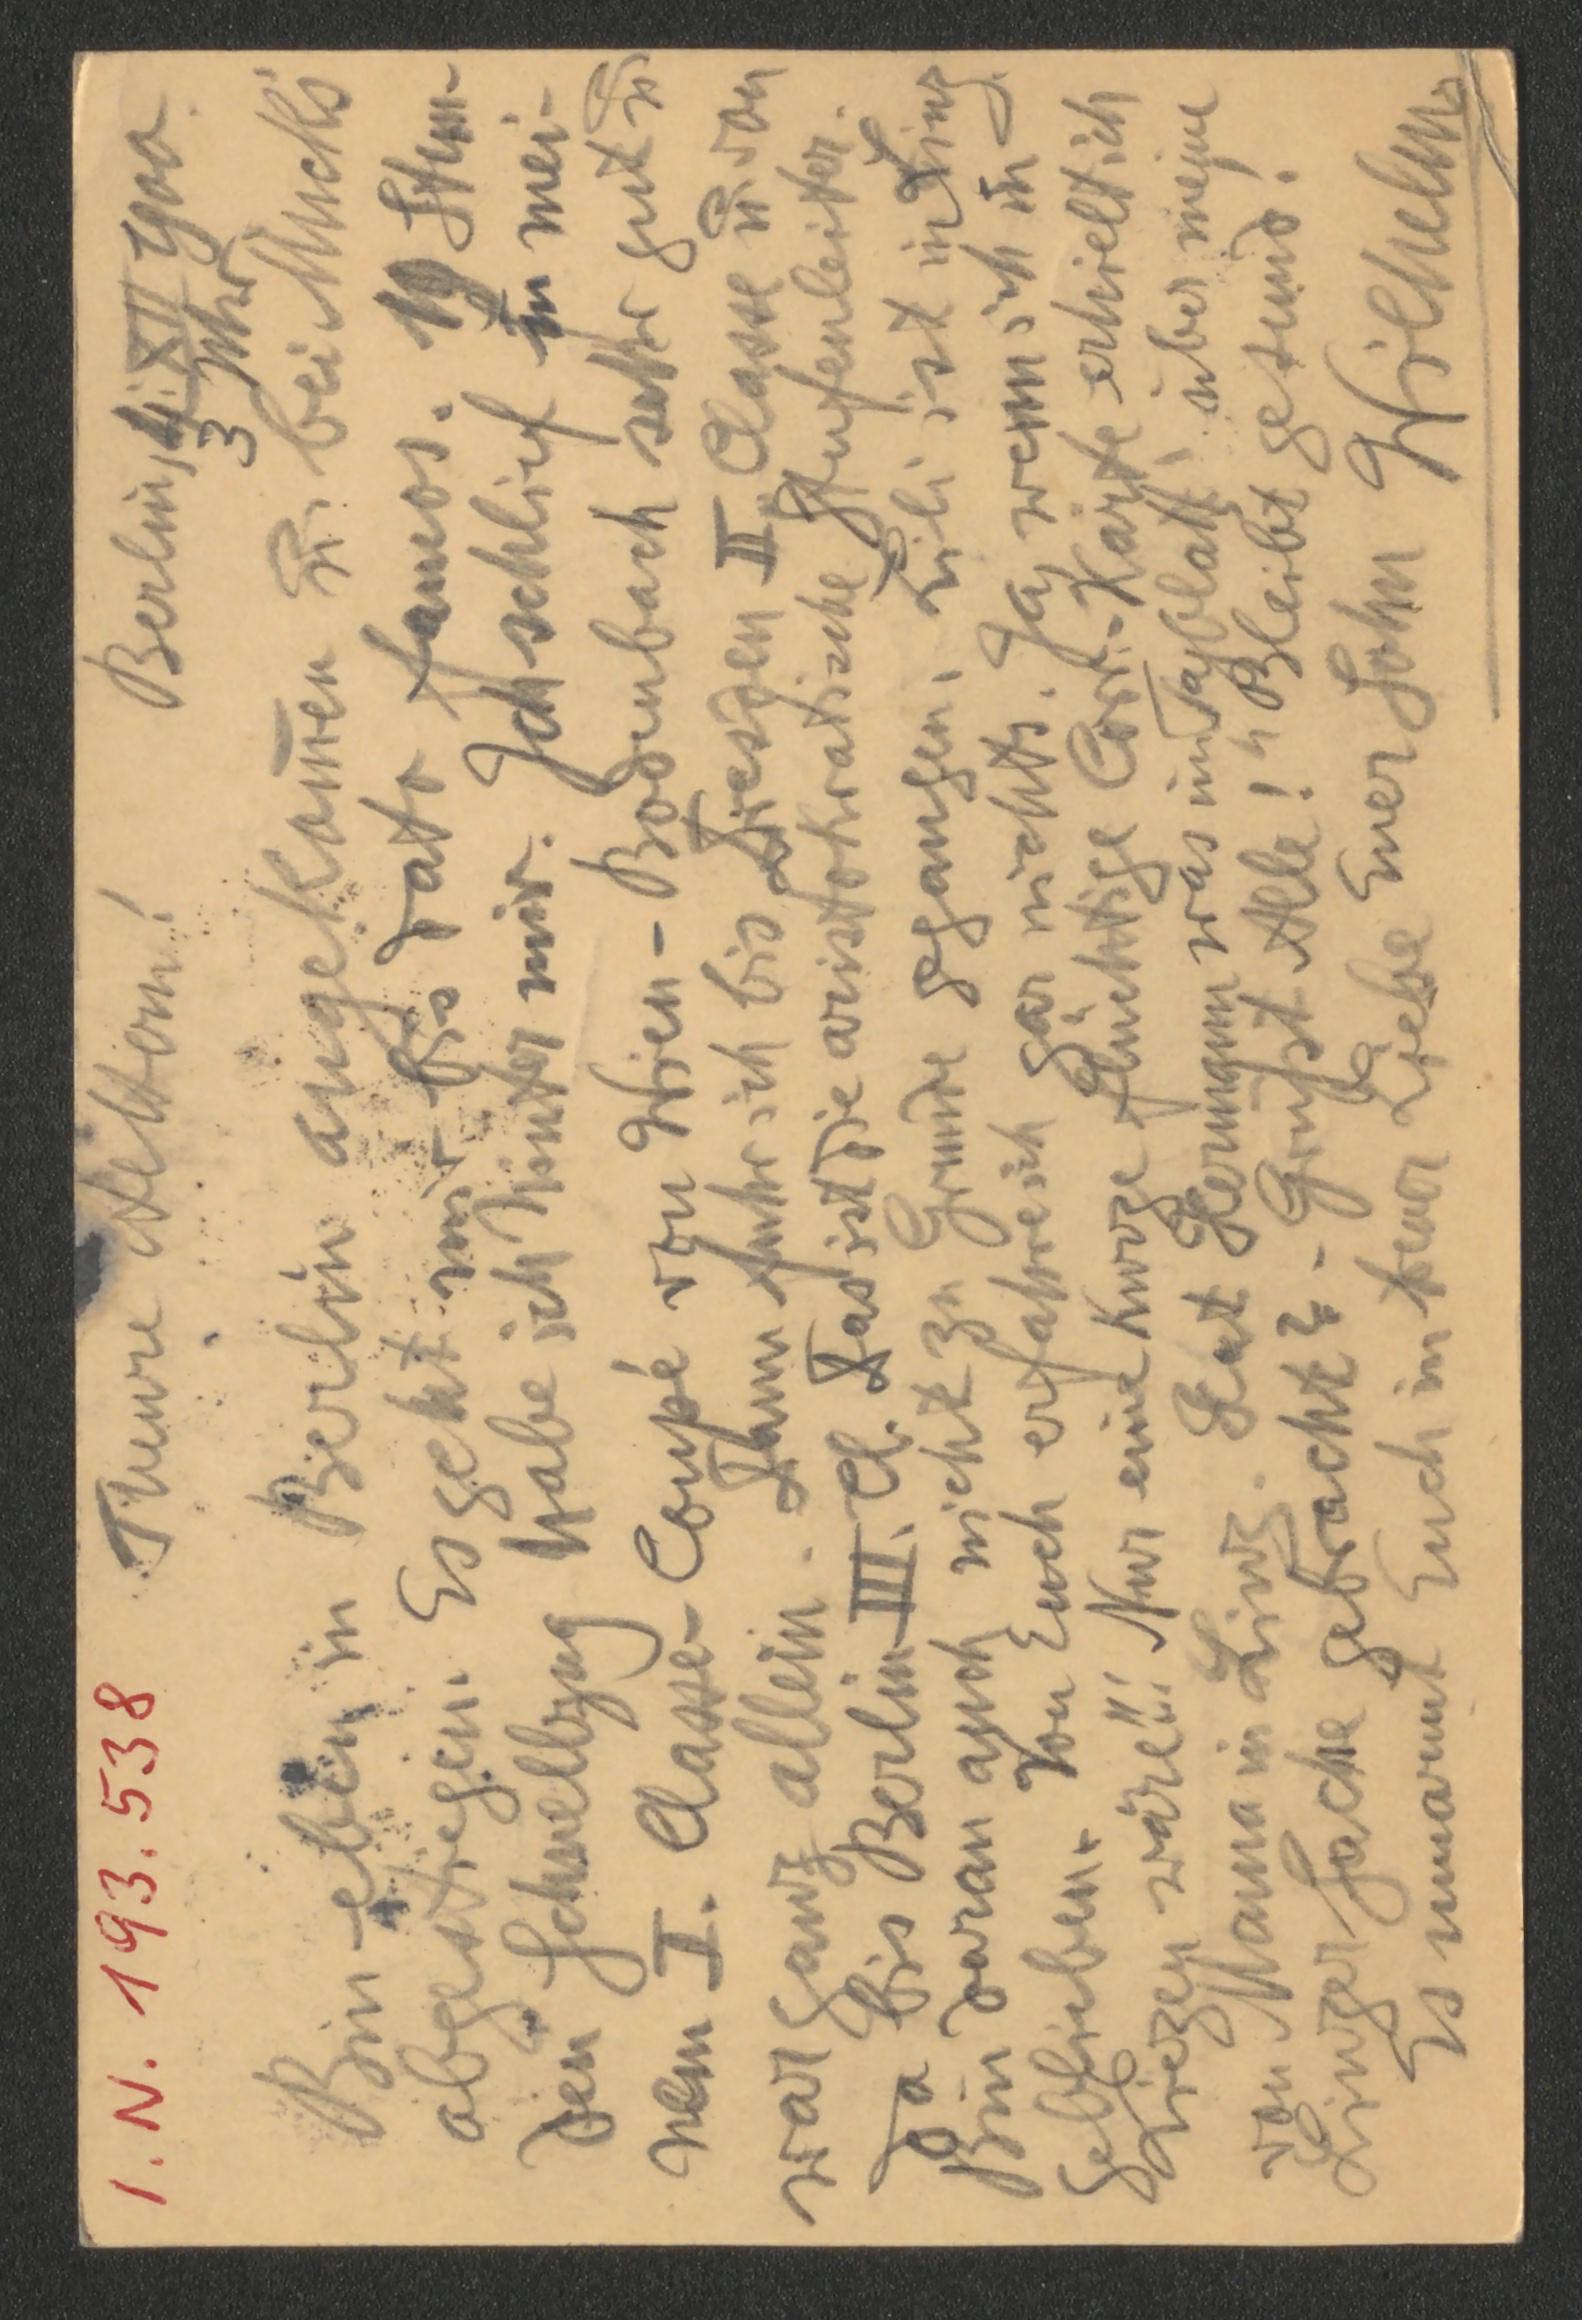 I. N. 193.538
Teure Aeltern! Berlin, 4. XII
3 Uhr
Bin eben in Berlin angekom̄en u. bei Mucks
abgestiegen. Es geht mir bis dato famos. 19 Stun-
den Schnellzug habe ich hinter mir. Ich schlief in mei-
nem I. Classe-Coupé von Wien-Bodenbach sehr gut u.
war ganz allein. Dann fuhr ich bis Dresden II. Classe u. von
da bis Berlin III. Cl. Das ist die aristokratische Stufenleiter.
Bin daran auch nicht zu Grunde gegangen. Lili ist in Linz
geblieben. Von Euch erfahre ich gar nichts. Ja, wenn ich in
Liezen wäre!!! Nur eine kurze flüchtige Corr.-Karte erhielt ich
von Mama in Linz. Hat Hermann was im Tagblatt über meine
Linzer Sache gebracht? - Grüßt Alle! Bleibt gesund!
Es umarmt Euch in treuer Liebe Euer Sohn Wilhelm